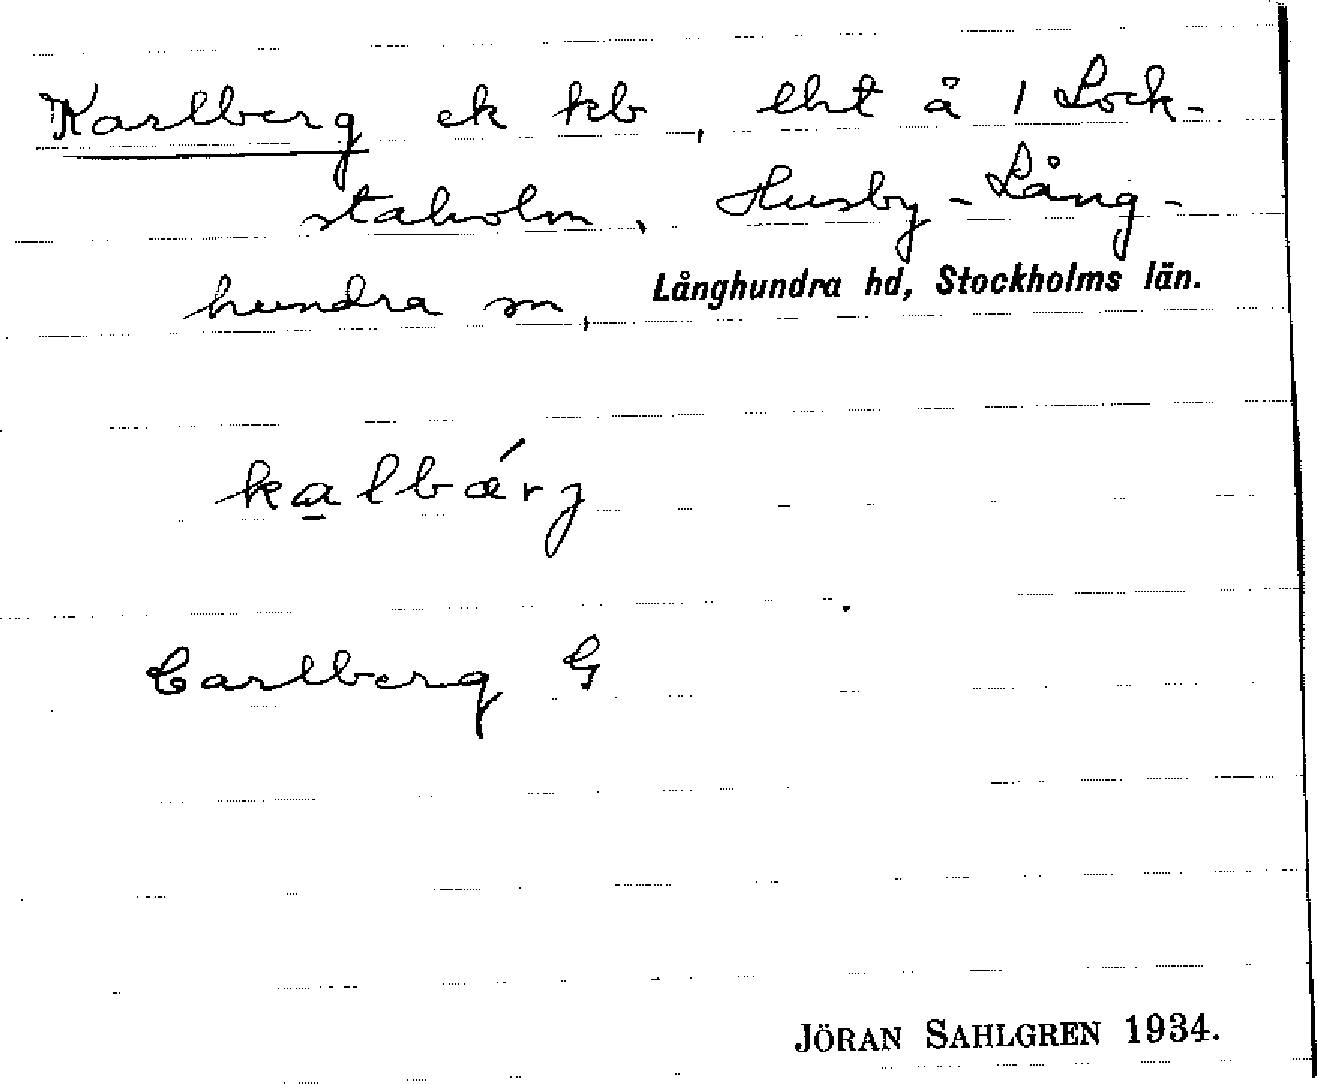 Karlberg ek kb, lht å 1 Lock-
staholm, Husby-Lång-
hundra sn, Långhundra hd, Stockholms län.
kalbærj
Carlberg G
JÖRAN SAHLGREN 1934.